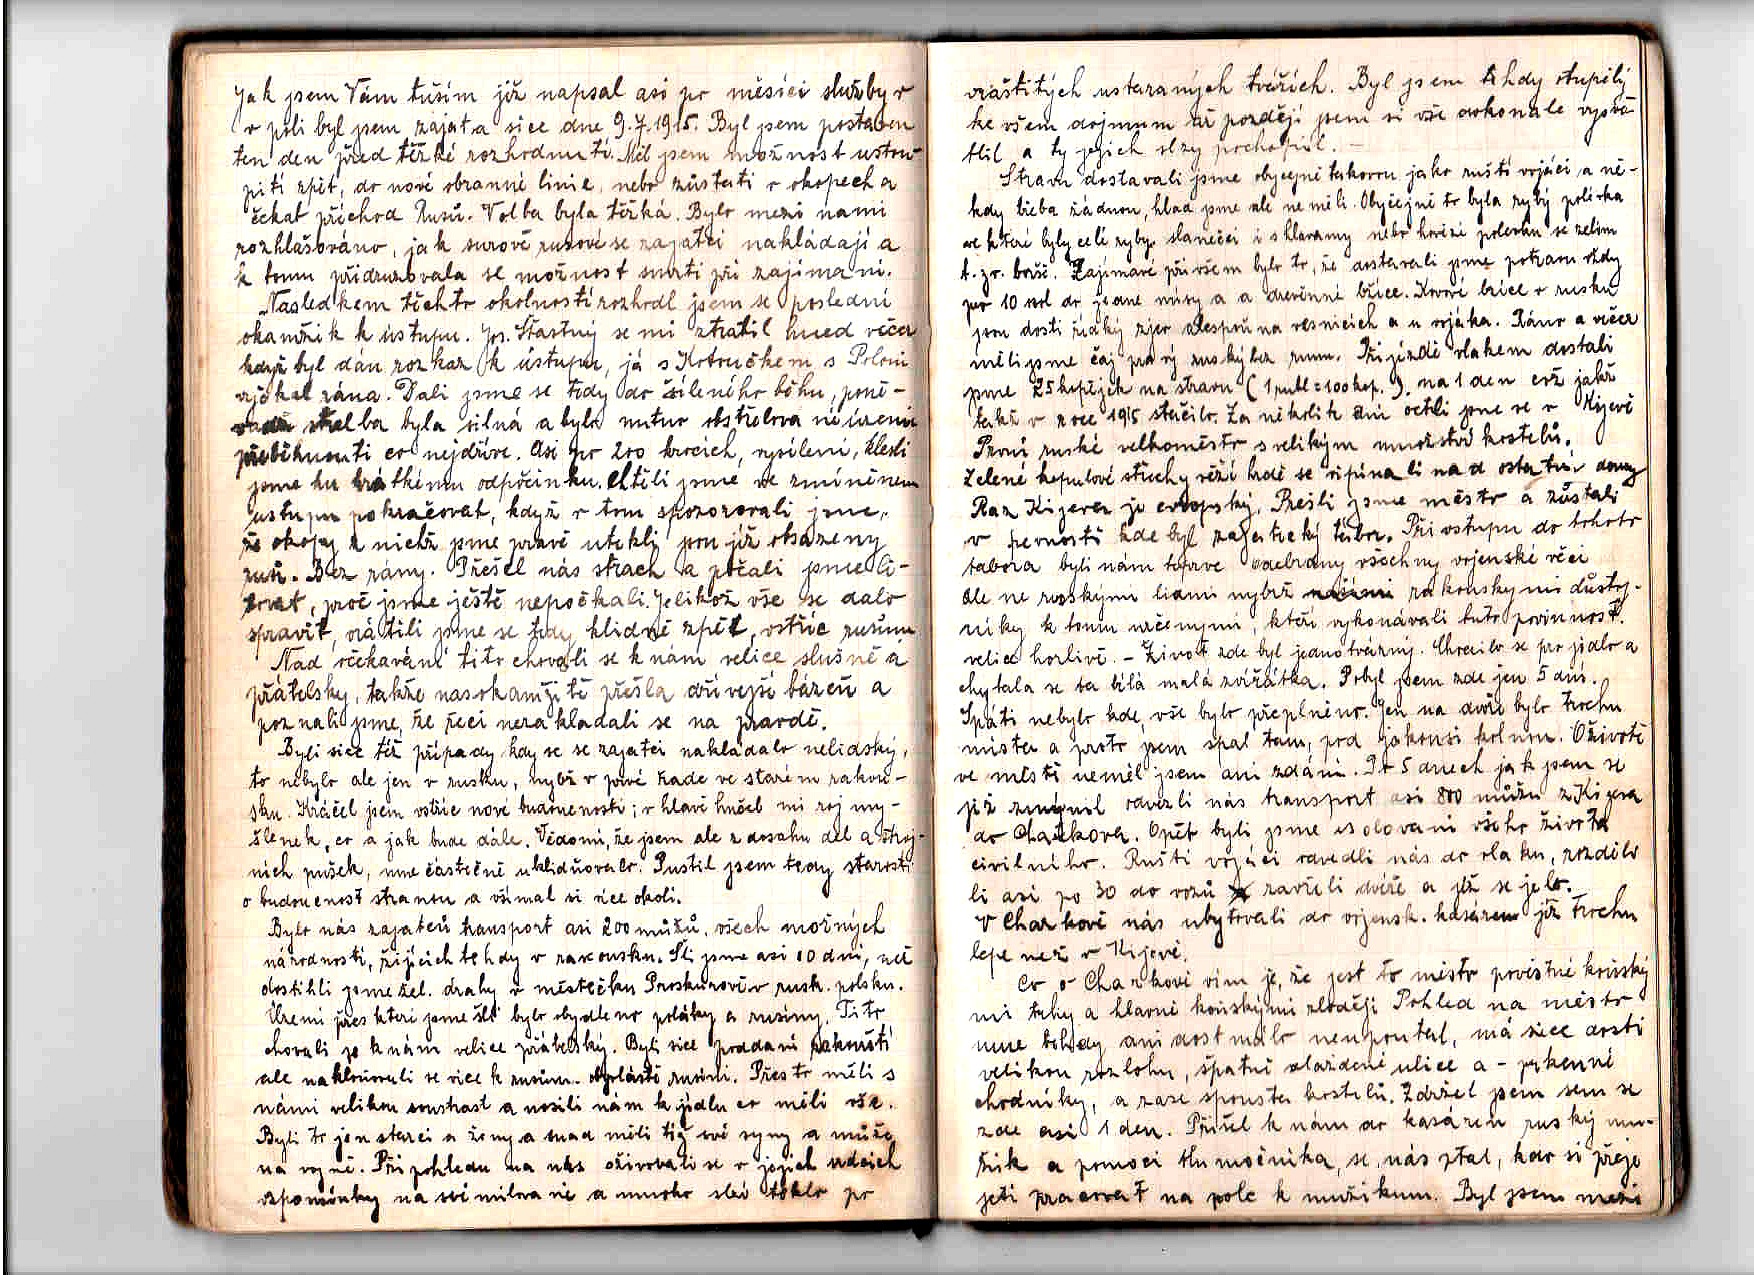 Jak jsem Vám tuším již napsal asi po měsíci služby v
v poli byl jsem zajat a sice dne 9.7.1915. Byl jsem postaven
ten den před těžké rozhodnutí. Měl jsem možnost ustou-
piti zpět, do nové obranné linie, nebo zůstati v okopech a
čekat příchod Rusů. Volba byla těžká. Bylo mezi nami
rozhlašováno, jak surově rusové se zajatci nakládají a
k tomu přidruzovala se možnost smrti při zajímaní.
Nasledkem těchto okolností rozhodl jsem se poslední
okamžik k ústupu. Jos. Šťastný se mi ztratil hned večer
když byl dán rozkaz k ústupu, já s Kotoučkem s Poloni
vyčkal rána. Dali jsme se tedy do šíleného běhu, poně-
vadž střelba byla silná a bylo nutno obstřelova né území
přeběhnouti co nejdříve. Asi po 200 krocích, vysíleni, klesli
jsme ku krátkému odpočinku. Chtěli jsme ve zmíněnem
ustupu pokračovat, když v tom spozorovali jsme,
že okopy z nichž jsme pravě utekli jsou již obsazeny
rusi. Bez rány. Přešel nás strach a počali jsme li-
tovat, proč jsme ještě nepočkali. Jelikož vše se dalo
spravit, vrátili jsme se tedy klidně zpět, vstříc rusům
Nad očekavání tito chovali se k nám velice slušně a
přátelsky, takže nas okamžitě přešla dřívejší bázeň a
poznali jsme, že řeči nezakladali se na pravdě.
Byli sice též případy, kdy se se zajatci nakládalo nelidský,
to nebylo ale jen v rusku, nybž v prvé řadě ve starém rakou-
sku. Kráčel jsem vstříc nové budoucnosti; v hlavě hučel mi roj my-
šlenek, co a jak bude dále. Vědomi, že jsem ale z dosahu děl a stroj-
ních pušek, mne částečně uklidňovalo. Pustil jsem tedy starosti
o budoucnost stranou a všímal si více okolí.
Bylo nás zajatců transport asi 200 mužů, všech možných
národností, žijících tehdy v rakousku. Šli jsme asi 10 dní, než
dostihli jsme žel. dráhy v městečku Proskurově v rusk. polsku.
Uzemi přes které jsme šli bylo obydleno poláky a rusíny. Tito
chovali se k nám velice přátelský. Byli sice poddaní rakouští
ale nakloňovali se více k rusům. obzláště rusíni. Přes to měli s
námi velikou soustrast a nosili nám k jídlu co měli vše.
Byli to jen starci a ženy a snad měli též své syny a muže
na vojně. Při pohledu na nás oživovali se v jejich srdcich
vzpomínky na své milova né a mnoho slzí teklo po
vráštitých ustaraných tvářích. Byl jsem tehdy otupělý
ke všem dojmum až později jsem si vše dokonale vysvě-
tlil a ty jejich slzy pochopil. —
Stravu dostavali jsme obyčejně takovou jako ruští vojáci a ně-
kdy třeba žádnou, hlad jsme ale neměli. Obyčejně to byla rybý polévka
ve které byly celé ryby slanečci i s hlavamy nebo hovězí polevku se zelím
t. zv. boršč. Zajímavé při všem bylo to, že dostavali jsme potravu vždy
pro 10 osob do jedné mísy a a dřevěnné lžíce. Kovové lžíce v rusku
jsou dosti řídký zjev alespoň na vesnicích a u vojáka. Ráno a večer
měli jsme čaj pravý ruský bez rumu. Při jízdě vlakem dostali
jsme 25 kopějek na stravu (1 rubl = 100 kop.) na 1 den což jakž
takž v roce 1915 stačilo. Za několik dní octli jsme se v Kijevě
První ruské velkoměsto s velikým množství kostelů.
Zelené kopulové střechy věží hrdě se vypína li nad ostatní domy
Raz Kijeva je evropský. Prešli jsme město a zůstali
v pevnosti kde byl zajatecký tábor. Při vstupu do tohoto
tabora byli nám teprve odebrány všechny vojenské věci
ale ne ruskými lidmi nybrž našimi rakouskymi důstoj-
níky k tomu určenými, kteří vykonávali tuto povinnost.
velice horlivě. – Život zde byl jednotvárný. Chodilo se pro jidlo a
chytala se ta bílá malá zvířátka. Pobyl jsem zde jen 5 dní.
Spáti nebylo kde, vše bylo přeplněno. Jen na dvoře bylo trochu
místa a proto jsem spal tam, pod jakousi kolnou. O životě
ve městě neměl jsem ani zdání. Po 5 dnech jak jsem se
již zmínil odvezli nás transport asi 800 mužů z Kijeva
do Charkova. Opět byli jsme isolovani všeho života
civilního. Ruští vojáci odvedli nás do vlaku, rozdělo
li asi po 30 do vozů zavřeli dvéře a již se jelo.
V Charkově nás ubytovali do vojensk. kasáren již trochu
lépe než v Kijevě.
Co o Charkově vím je, že jest to město pověstné koňský
mi trhy a hlavně koňskými zloději Pohled na město
mne tehdy ani dost málo neupoutal, má sice dosti
velikou rozlohu, špatně dlážděné ulice a – prkenné
chodníky, a zase spousta kostelů. Zdržel jsem sem se
zde asi 1 den. Přišel k nám do kasáren ruský mu-
žik a pomocí tlumočníka, se nás ptal, kdo si přeje
jeti pracovat na pole k mužikum. Byl jsem mezi